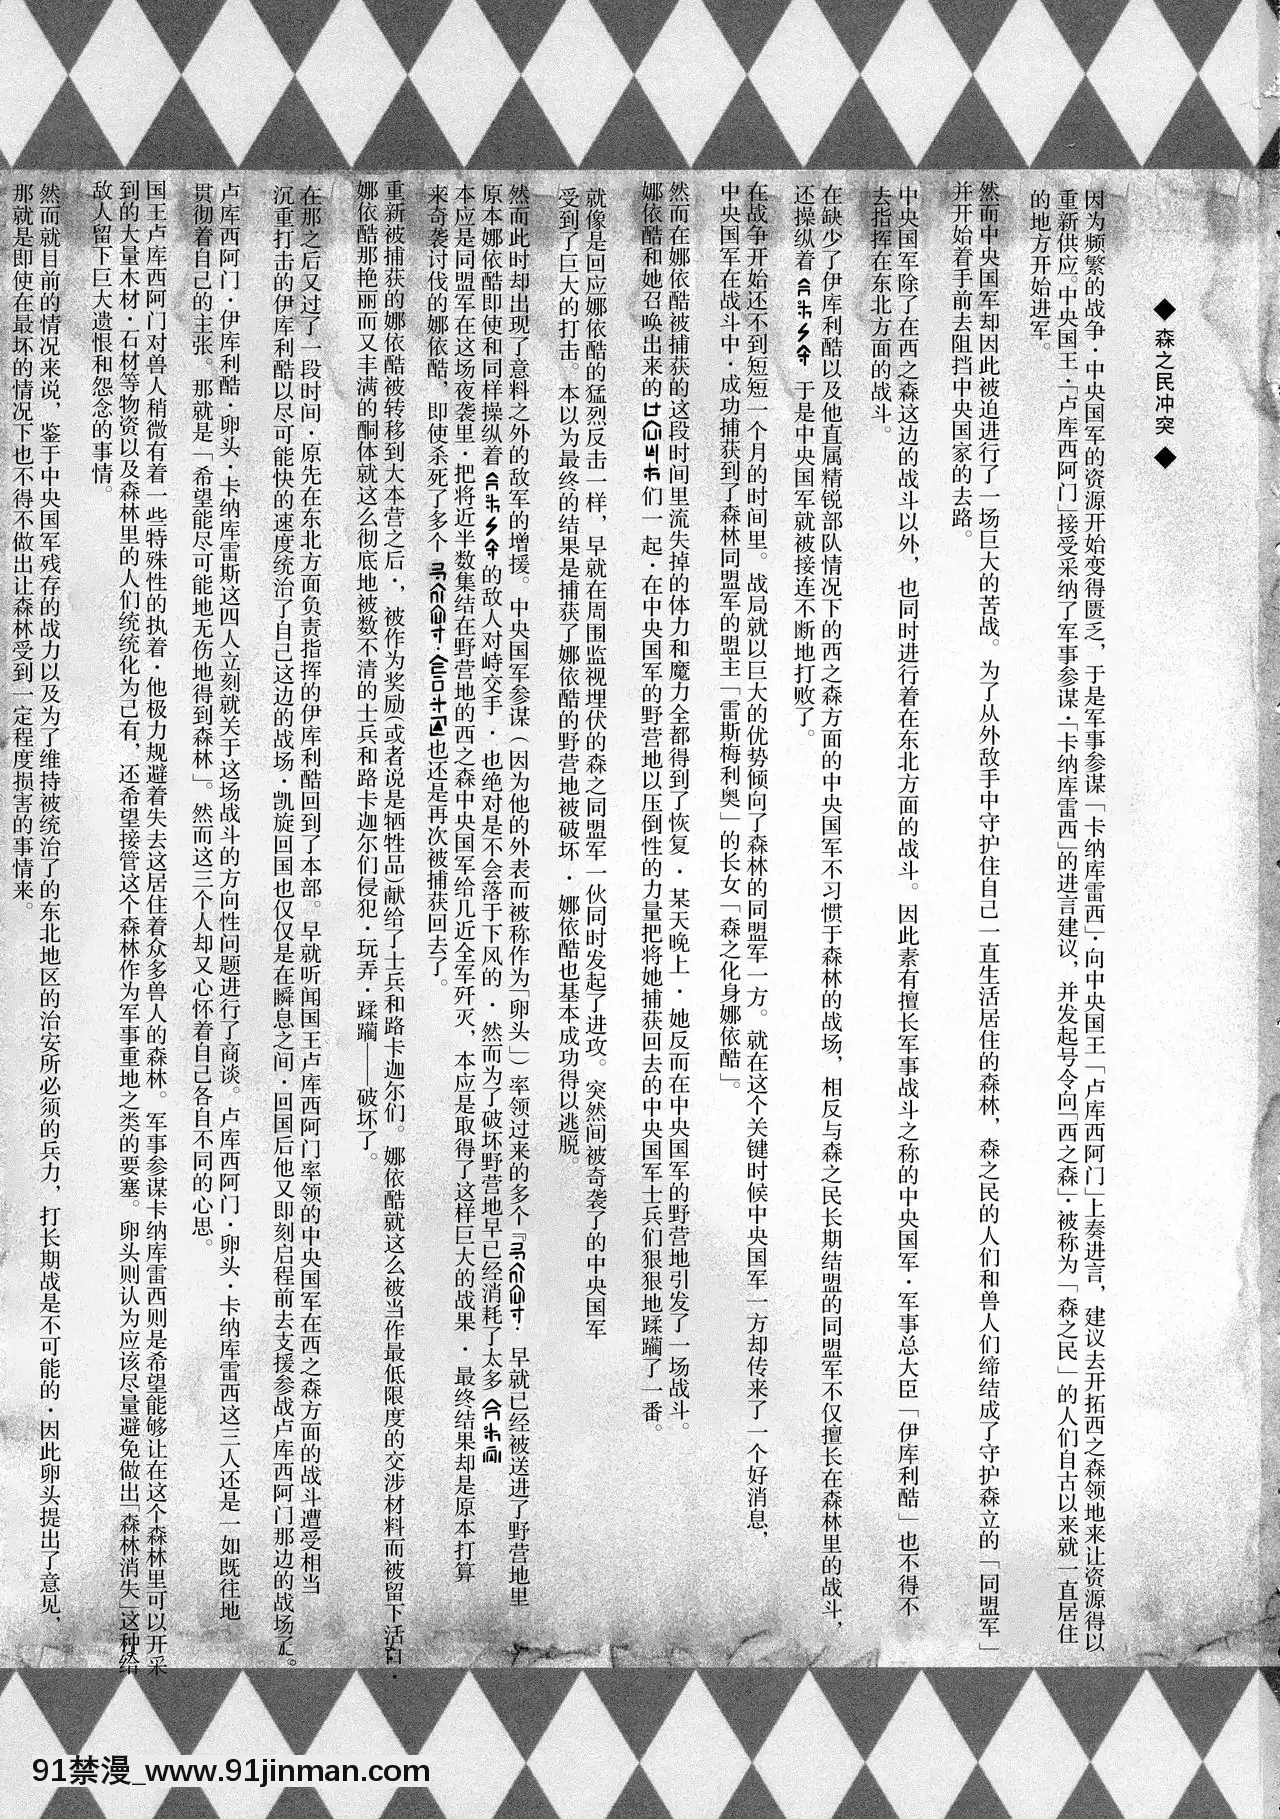 ◆ 森之民冲突 ◆
因为频繁的战争·中央国军的资源开始变得匮乏，于是军事参谋「卡纳库雷西」·向中央国王「卢库西阿门」上奏进言，建议去开拓西之森领地来让资源得以
重新供应。中央国王·卢库西阿门」接受采纳了军事参谋·「卡纳库雷西」的进言建议，并发起号令向「西之森」·被称为「森之民」的人们自古以来就一直居住
的地方开始进军。
然而中央国军却因此被迫进行了一场巨大的苦战。为了从外敌手中守护住自己一直生活居住的森林，森之民的人们和兽人们缔结成了守护森立的「同盟军」
并开始着手前去阻挡中央国家的去路。
中央国军除了在西之森这边的战斗以外，也同时进行着在东北方面的战斗。因此素有擅长军事战斗之称的中央国军·军事总大臣「伊库利酷」也不得不
去指挥在东北方面的战斗。
在缺少了伊库利酷以及他直属精锐部队情况下的西之森方面的中央国军不习惯于森林的战场，相反与森之民长期结盟的同盟军不仅擅长在森林里的战斗，
还操纵着 于是中央国军就被接连不断地打败了。
在战争开始还不到短短一个月的时间里。战局就以巨大的优势倾向了森林的同盟军一方。就在这个关键时候中央国军一方却传来了一个好消息，
中央国军在战斗中·成功捕获到了森林同盟军的盟主「雷斯梅利奥」的长女「森之化身娜依酷」。
然而在娜依酷被捕获的这段时间里流失掉的体力和魔力全都得到了恢复·某天晚上·她反而在中央国军的野营地引发了一场战斗。
娜依酷和她召唤出来的 们一起·在中央国军的野营地以压倒性的力量把将她捕获回去的中央国军士兵们狠狠地蹂躏了一番。
就像是回应娜依酷的猛烈反击一样，早就在周围监视埋伏的森之同盟军一伙同时发起了进攻。突然间被奇袭了的中央国军
受到了巨大的打击。本以为最终的结果是捕获了娜依酷的野营地被破坏·娜依酷也基本成功得以逃脱。
然而此时却出现了意料之外的敌军的增援。中央国军参谋（因为他的外表而被称作为「卵头」）率领过来的多个『 · 早就已经被送进了野营地里
原本娜依酷即使和同样操纵着 的敌人对峙交手·也绝对是不会落于下风的·然而为了破坏野营地早已经消耗了太多
本应是同盟军在这场夜袭里·把将近半数集结在野营地的西之森中央国军给几近全军歼灭，本应是取得了这样巨大的战果·最终结果却是原本打算
来奇袭讨伐的娜依酷，即使杀死了多个 · 也还是再次被捕获回去了。
重新被捕获的娜依酷被转移到大本营之后·，被作为奖励(或者说是牺牲品)献给了士兵和路卡迦尔们。娜依酷就这么被当作最低限度的交涉材料而被留下活口·
娜依酷那艳丽而又丰满的酮体就这么彻底地被数不清的士兵和路卡迦尔们侵犯·玩弄·蹂躏——破坏了。
在那之后又过了一段时间·原先在东北方面负责指挥的伊库利酷回到了本部。早就听闻国王卢库西阿门率领的中央国军在西之森方面的战斗遭受相当
沉重打击的伊库利酷以尽可能快的速度统治了自己这边的战场·凯旋回国也仅仅是在瞬息之间·回国后他又即刻启程前去支援参战卢库西阿门那边的战场了。
卢库西阿门·伊库利酷·卵头·卡纳库雷斯这四人立刻就关于这场战斗的方向性问题进行了商谈。卢库西阿门·卵头·卡纳库雷西这三人还是一如既往地
贯彻着自己的主张。那就是「希望能尽可能地无伤地得到森林」。然而这三个人却又心怀着自己各自不同的心思。
国王卢库西阿门对兽人稍微有着一些特殊性的执着·他极力规避着失去这居住着众多兽人的森林。军事参谋卡纳库雷西则是希望能够让在这个森林里可以开采
到的大量木材·石材等物资以及森林里的人们统统化为己有，还希望接管这个森林作为军事重地之类的要塞。卵头则认为应该尽量避免做出「森林消失」这种给
敌人留下巨大遗恨和怨念的事情。
然而就目前的情况来说，鉴于中央国军残存的战力以及为了维持被统治了的东北地区的治安所必须的兵力，打长期战是不可能的·因此卵头提出了意见，
那就是即使在最坏的情况下也不得不做出让森林受到一定程度损害的事情来。
91禁漫_www.91jinman.com